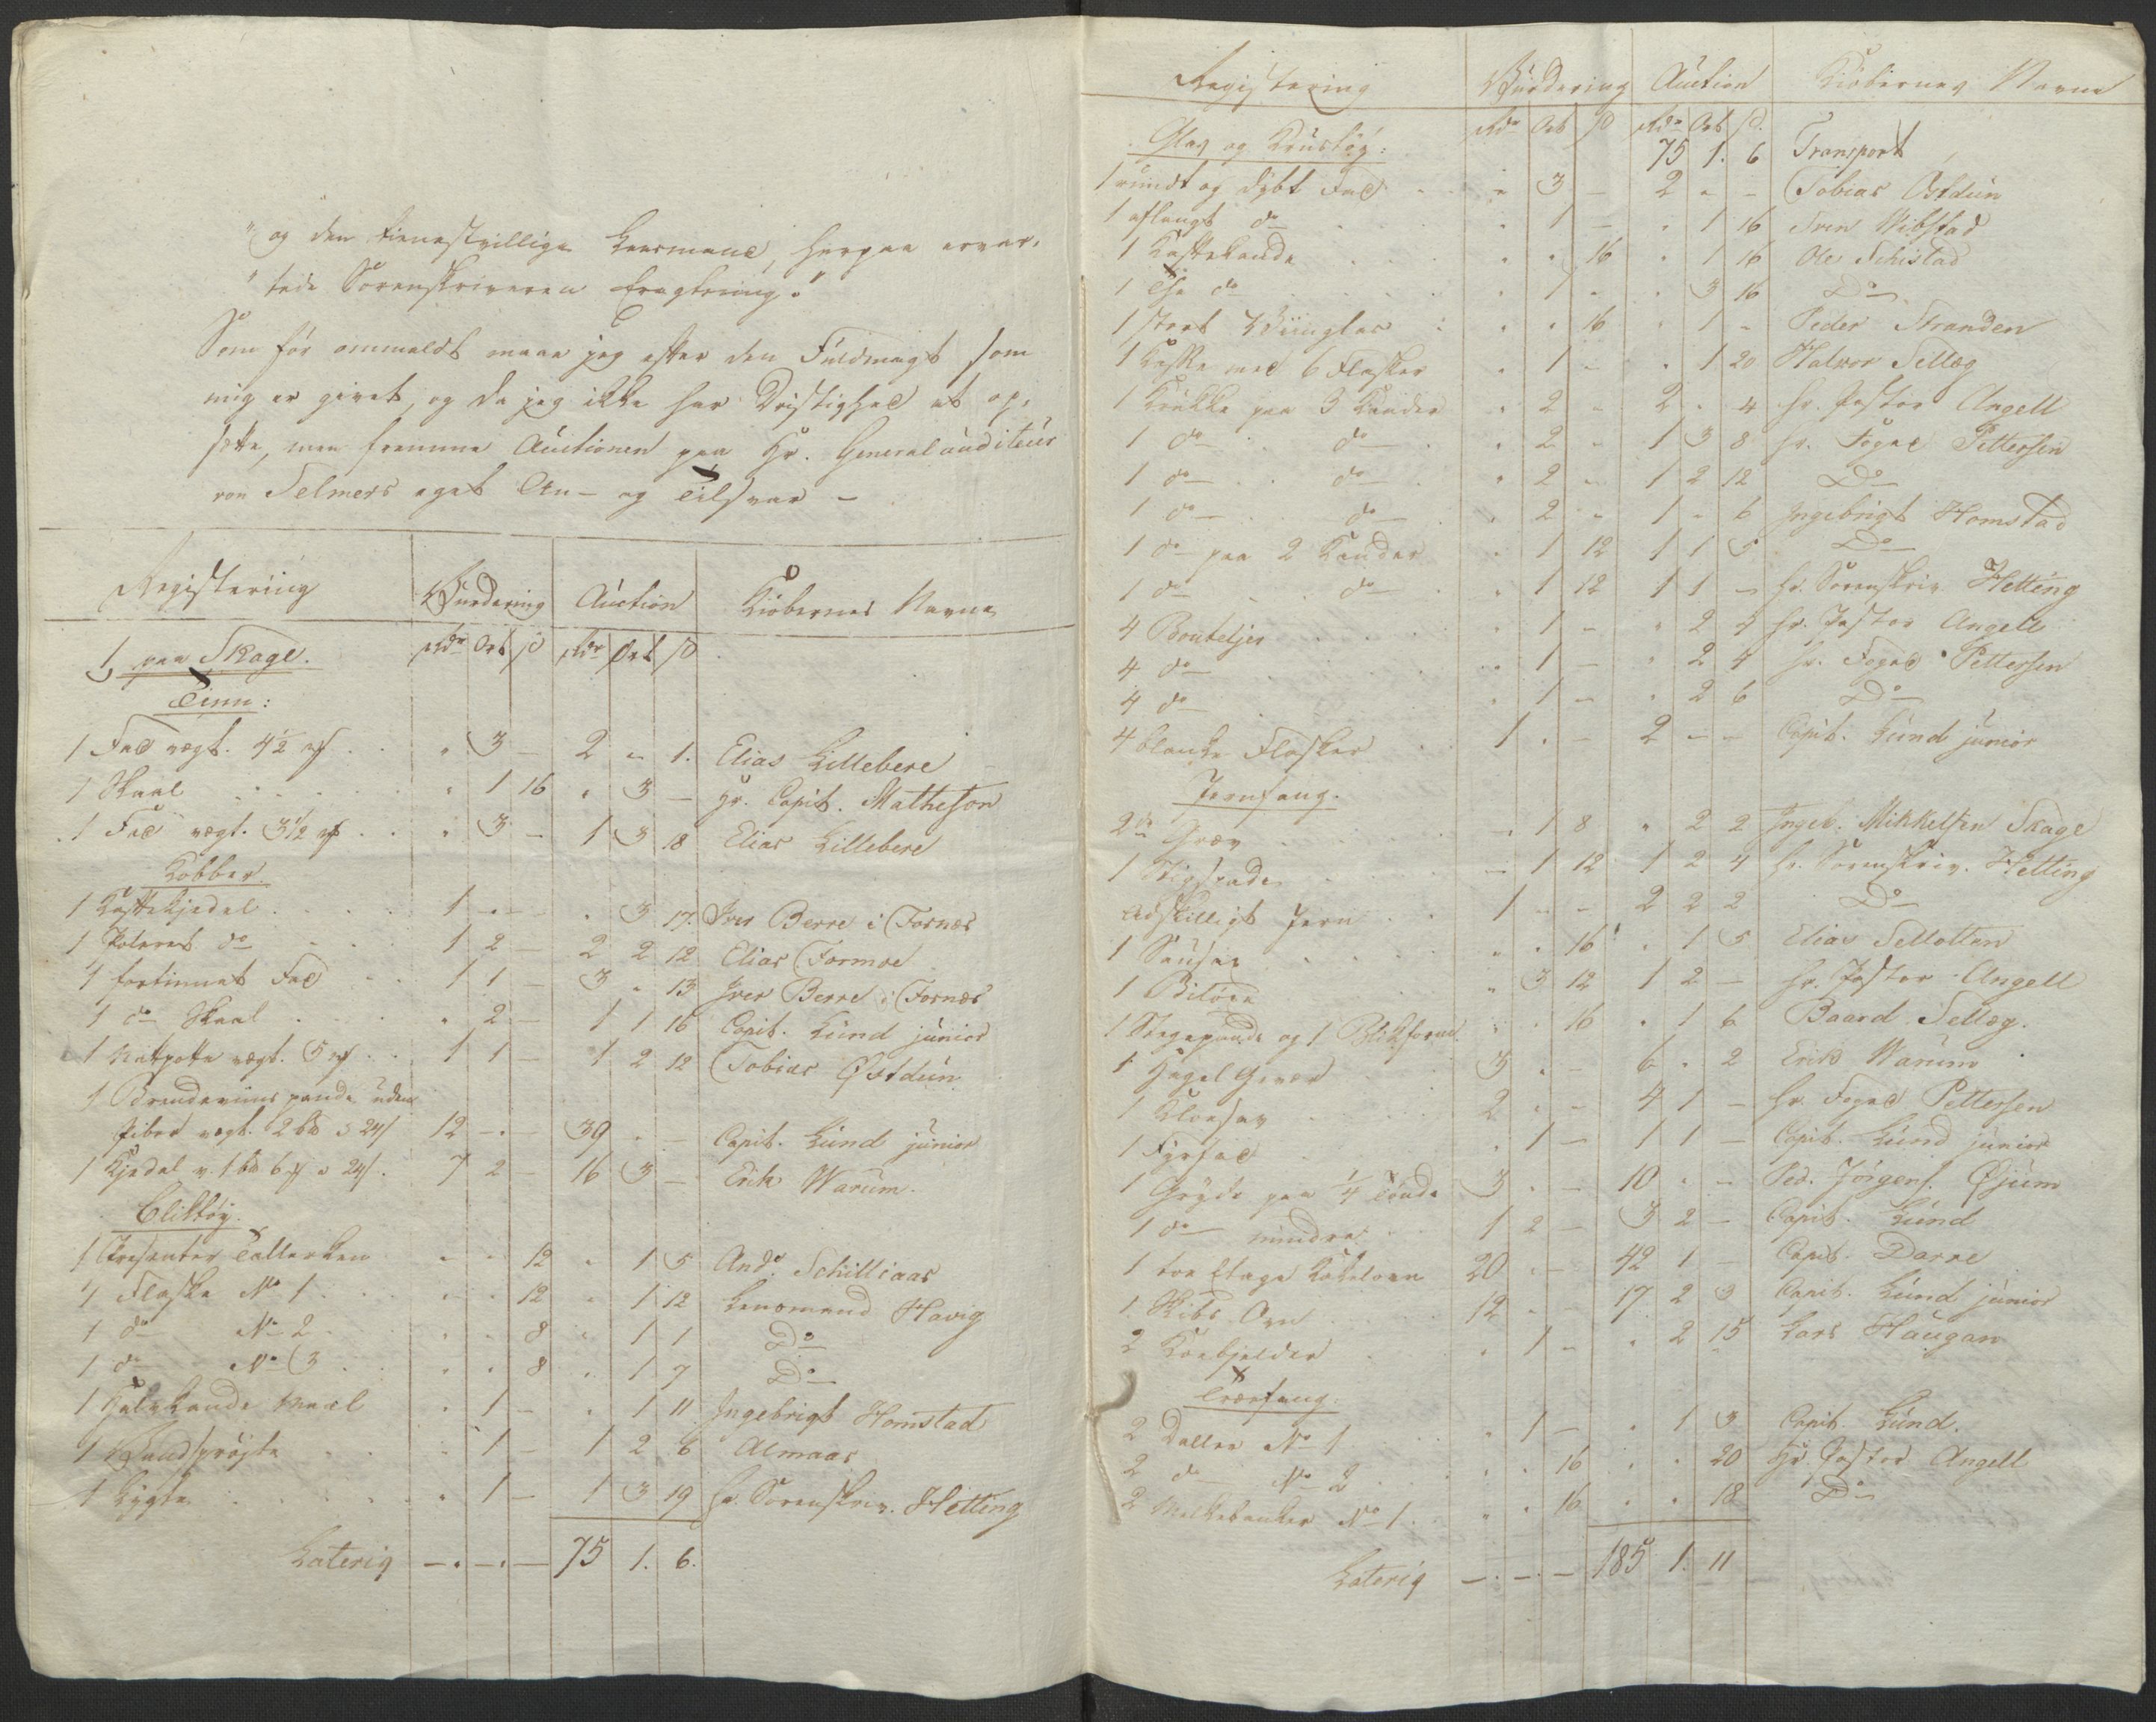 "og den tienestvillige Lensmand, herpaa ervar-
"tede Sorenskriveren Eragtning."
Som før ommeldt maae jeg efter den Fuldmagt som
mig er givet, og da jeg ikke har Dristighed at op-
sette, men fremme Auctionen paa Hr. Generalauditeur
von Selmers eget An- og Tilsvar –
Registering Wurdering Auction Kiöbernes Navne
1, paa Skage. Rdr Ort s Rdr Ort s
Tinn:
1 Fad vægt. 4½ " 3 – 2 " 1. Elias Lillebere
1 Skaal " 1 16 " 3 – Hr. Capit. Matheson
1 Fad vægt. 3½ " 3 – 1 3 18 Elias Lillebere
Kobber.
1 Kaffekjedel 1 " – " 3 17. Iver Berre i Fosnæs
1 do 1 2 – 2 2 12 Elias Formoe
1 fortinnet Fad 1 1 – 3 " 13 Iver Berre i Fosnæs
1 do Skaal " 2 – 1 1 16 Capit. Lund junior
1 Natpotte vægt. 5 1 1 – 1 2 12 Tobias Østdun
1 Brændeviins pande uden
Piber vægt. 2 a 24 12 – – 39 " – Capit. Lund junior
1 Kjedel v. 1 6 a 24 7 2 – 16 3 – Erik Warum.
Bliktøy.
1 Presenter Tallerken " " 12 " 1 5 And. Schilliaas
1 Flaske No 1 " " 12 " 1 12 Lensmand Havig
1 do No 2 " " 8 " 1 1 Do
1 do No 3 " " 8 " 1 7 Do
1 Halvkande Maal " 1 – " 1 11 Ingebrigt Homstad
1 Handsprøjte " 1 – 1 2 6 Almaas
1 Lygte " 1 – 1 3 19 Hr. Sorenskriv. Hetting
Lateris – . – . – 75 1. 6.
Registering Wurdering Auction Kiöbernes Navne
Rdr Ort s Rdr Ort s
Glas og Kruustøy: 75 1. 6 Transport
1 rundt og dybt Fad " 3 – 2 " – Tobias Østdun
1 aflangt do " 1 – " 1 16 Sven Vibstad
1 Kaffekande " " 16 " 1 16 Ole Schistad
1 The do " 1 " " 3 16 Do
1 stort Viinglas " " 16 " 1 " Peder Stranden
1 Kasse med 6 Flasker " 1 – " 1 20 Halvor Sellæg
1 Krukke paa 3 Kander " 2 " 2 " 4 Hr. Pastor Angell
1 do do " 2 " 1 3 8 Hr. Foged Pettersen
1 do do " 2 " 1 2 12 Do
1 do do " 2 " 1 " 6 Ingebrigt Homstad
1 do paa 2 Kander " 1 12 1 1 5 Do
1 do do " 1 12 1 1 – Hr. Sorenskriv. Hetting
4 Bouteljer " 1 – " 2 4 Hr. Pastor Angell
4 do " 1 – " 2 4 Hr. Foged Pettersen
4 do " 1 – " 2 6 Do
4 blanke Flasker 1 " – 2 – – Capit. Lund junior
Jernfang.
2de Græv " 1 8 " 2 2 Ingeb. Mikkelsen Skage
1 Stigspade – 1 12 1 2 4 Hr. Sorenskriv. Hetting
Adskilligt Jern 1 – – 2 2 2 Do
1 " " 16 " 1 5 Elias Sellotten
1 " 3 12 1 2 – Hr. Pastor Angell
1 Stegepande og 1 Blikform " " 16 " 1 6 Baard Sellæg.
1 Hagel Gevær 3 " 6 " 2 Erik Warum
1 Kloesav 2 " – 4 1 – Hr. Foged Pettersen
1 Fyrfad " 1 – 1 1 – Capit. Lund junior
1 Gryde paa ¼ Tønde 3 " – 10 " – Ped. Jörgens. Øjum
1 do mindre 1 2 – 3 2 – Capit. Lund
1 toe Etage Kakeloen 20 " – 42 1 – Capit. Darre
1 Skibs Ovn 12 " – 17 2 3 Capit. Lund junior
2 Koebjelder " 1 – " 2 15 Lars Haugan
Træefang.
2 Daller No 1 " 1 – " 1 3 Capit. Lund.
2 do No 2 " " 16 " " 20 Hr. Pastor Angell
2 Melkebunker No 1 " " 16 " " 18 Do
Lateris – . – . – 185 1. 11